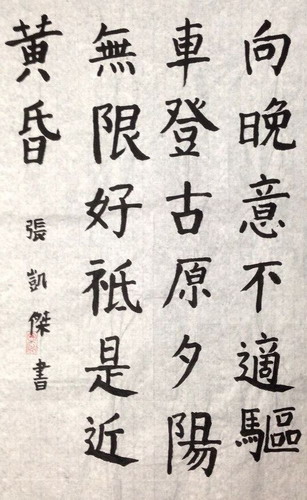 向晚意不適驅
車登古原夕陽
無限好祗是近
黃昏
張凱傑書